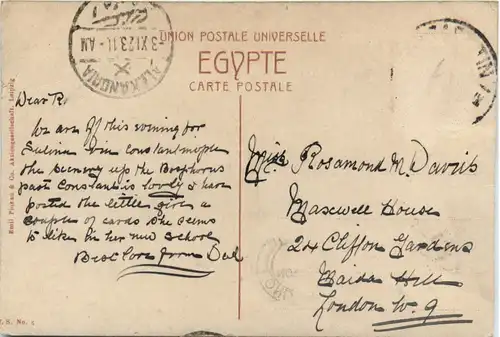 UNION POSTALE UNIVERSELLE
EGYPTE
CARTE POSTALE
ALEXANDRIA
3 XI 23.11- AM
Dear R.
We are off this evening for
Sulina via Constantinople
the scenery up the Bosphorus
past Constant is lovely I have
posted the little girl a
couple of cards She seems
to like in her new school
Best love from Dad
Miss Rosamond M. Davis
Maxwell House
24 Clifton Gardens
Maida Hill
London W. 9
Aktiengesellschaft, Leipzig
No. 1